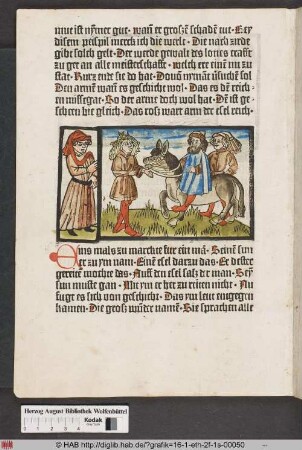 mut ist nymer gut. wan er groszen schaden tut. Bey
disem peispil merck ich die welt. Die nach irde
gibt solch gelt. Der werde gewalt des lones crafft
zu gee an alle meisterschafft. welch ere eint nu zu
stat. Kurz ende sie do hat.
Den armen wart es geschicht wol. Das es den reich-
en missegat. So der arme doch wol hat. Den ist ge-
schehen hie gleich. Das ros wart arm der esel reich.
Eins mals zu marckte fur ein man. Seinen sun
er zu ym nam. Einen esel darzu das. Er dester
gereite mochte das. Auff den esel sasz der man. Sey
sun muste gan. Mit ym er het zu reiten nicht. Nu
fuget es sich von geschicht. Das ym leut engegen
kamen. Die grosz wunder namen. Sie sprachen alle
Herzog August Bibliothek Wolfenbüttel
Kodak
© HAB http://diglib.hab.de/?grafik=16-1-eth-2f-1s-00050